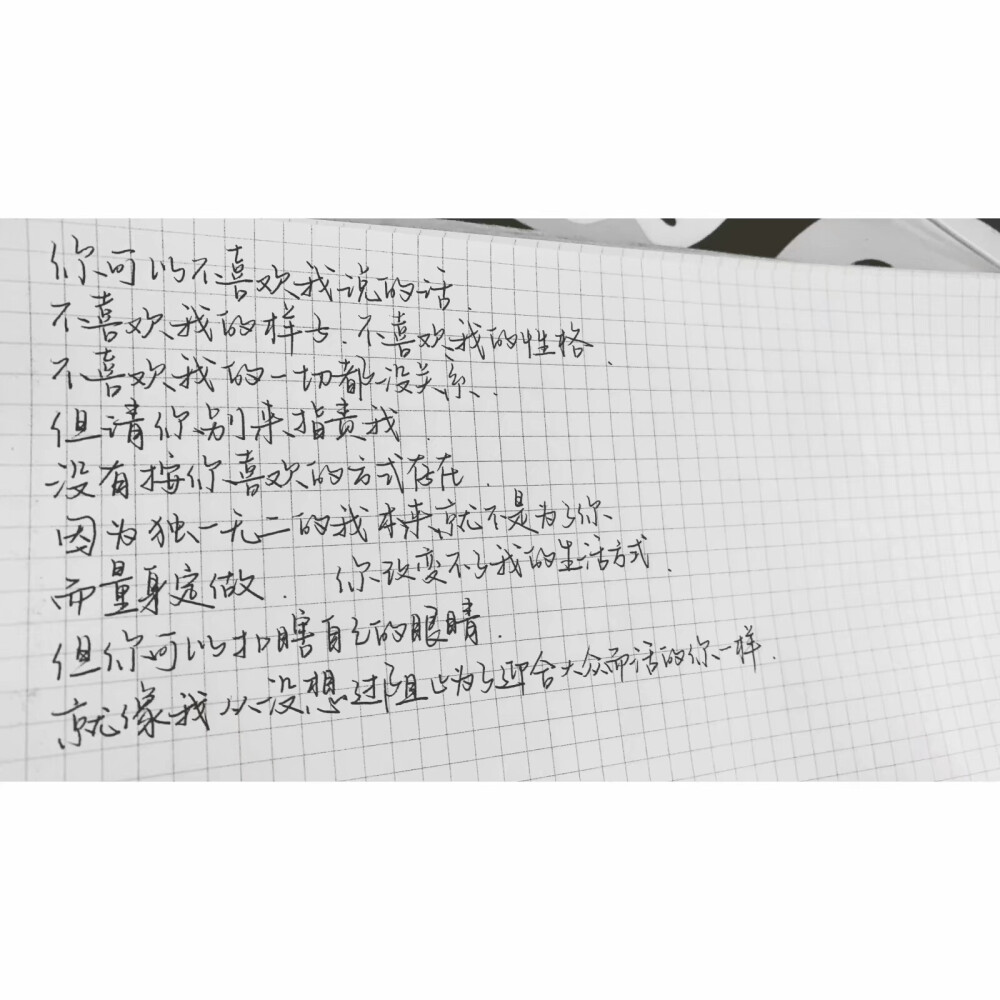 你可以不喜欢我说的话.
不喜欢我的样子.不喜欢我的性格.
不喜欢我的一切都没关系.
但请你别来指责我.
没有按你喜欢的方式存在.
因为独一无二的我本来就不是为了你
而量身定做. 你改变不了我的生活方式.
但你可以扣瞎自己的眼睛.
就像我从没想过阻止为了迎合大众而活的你一样.